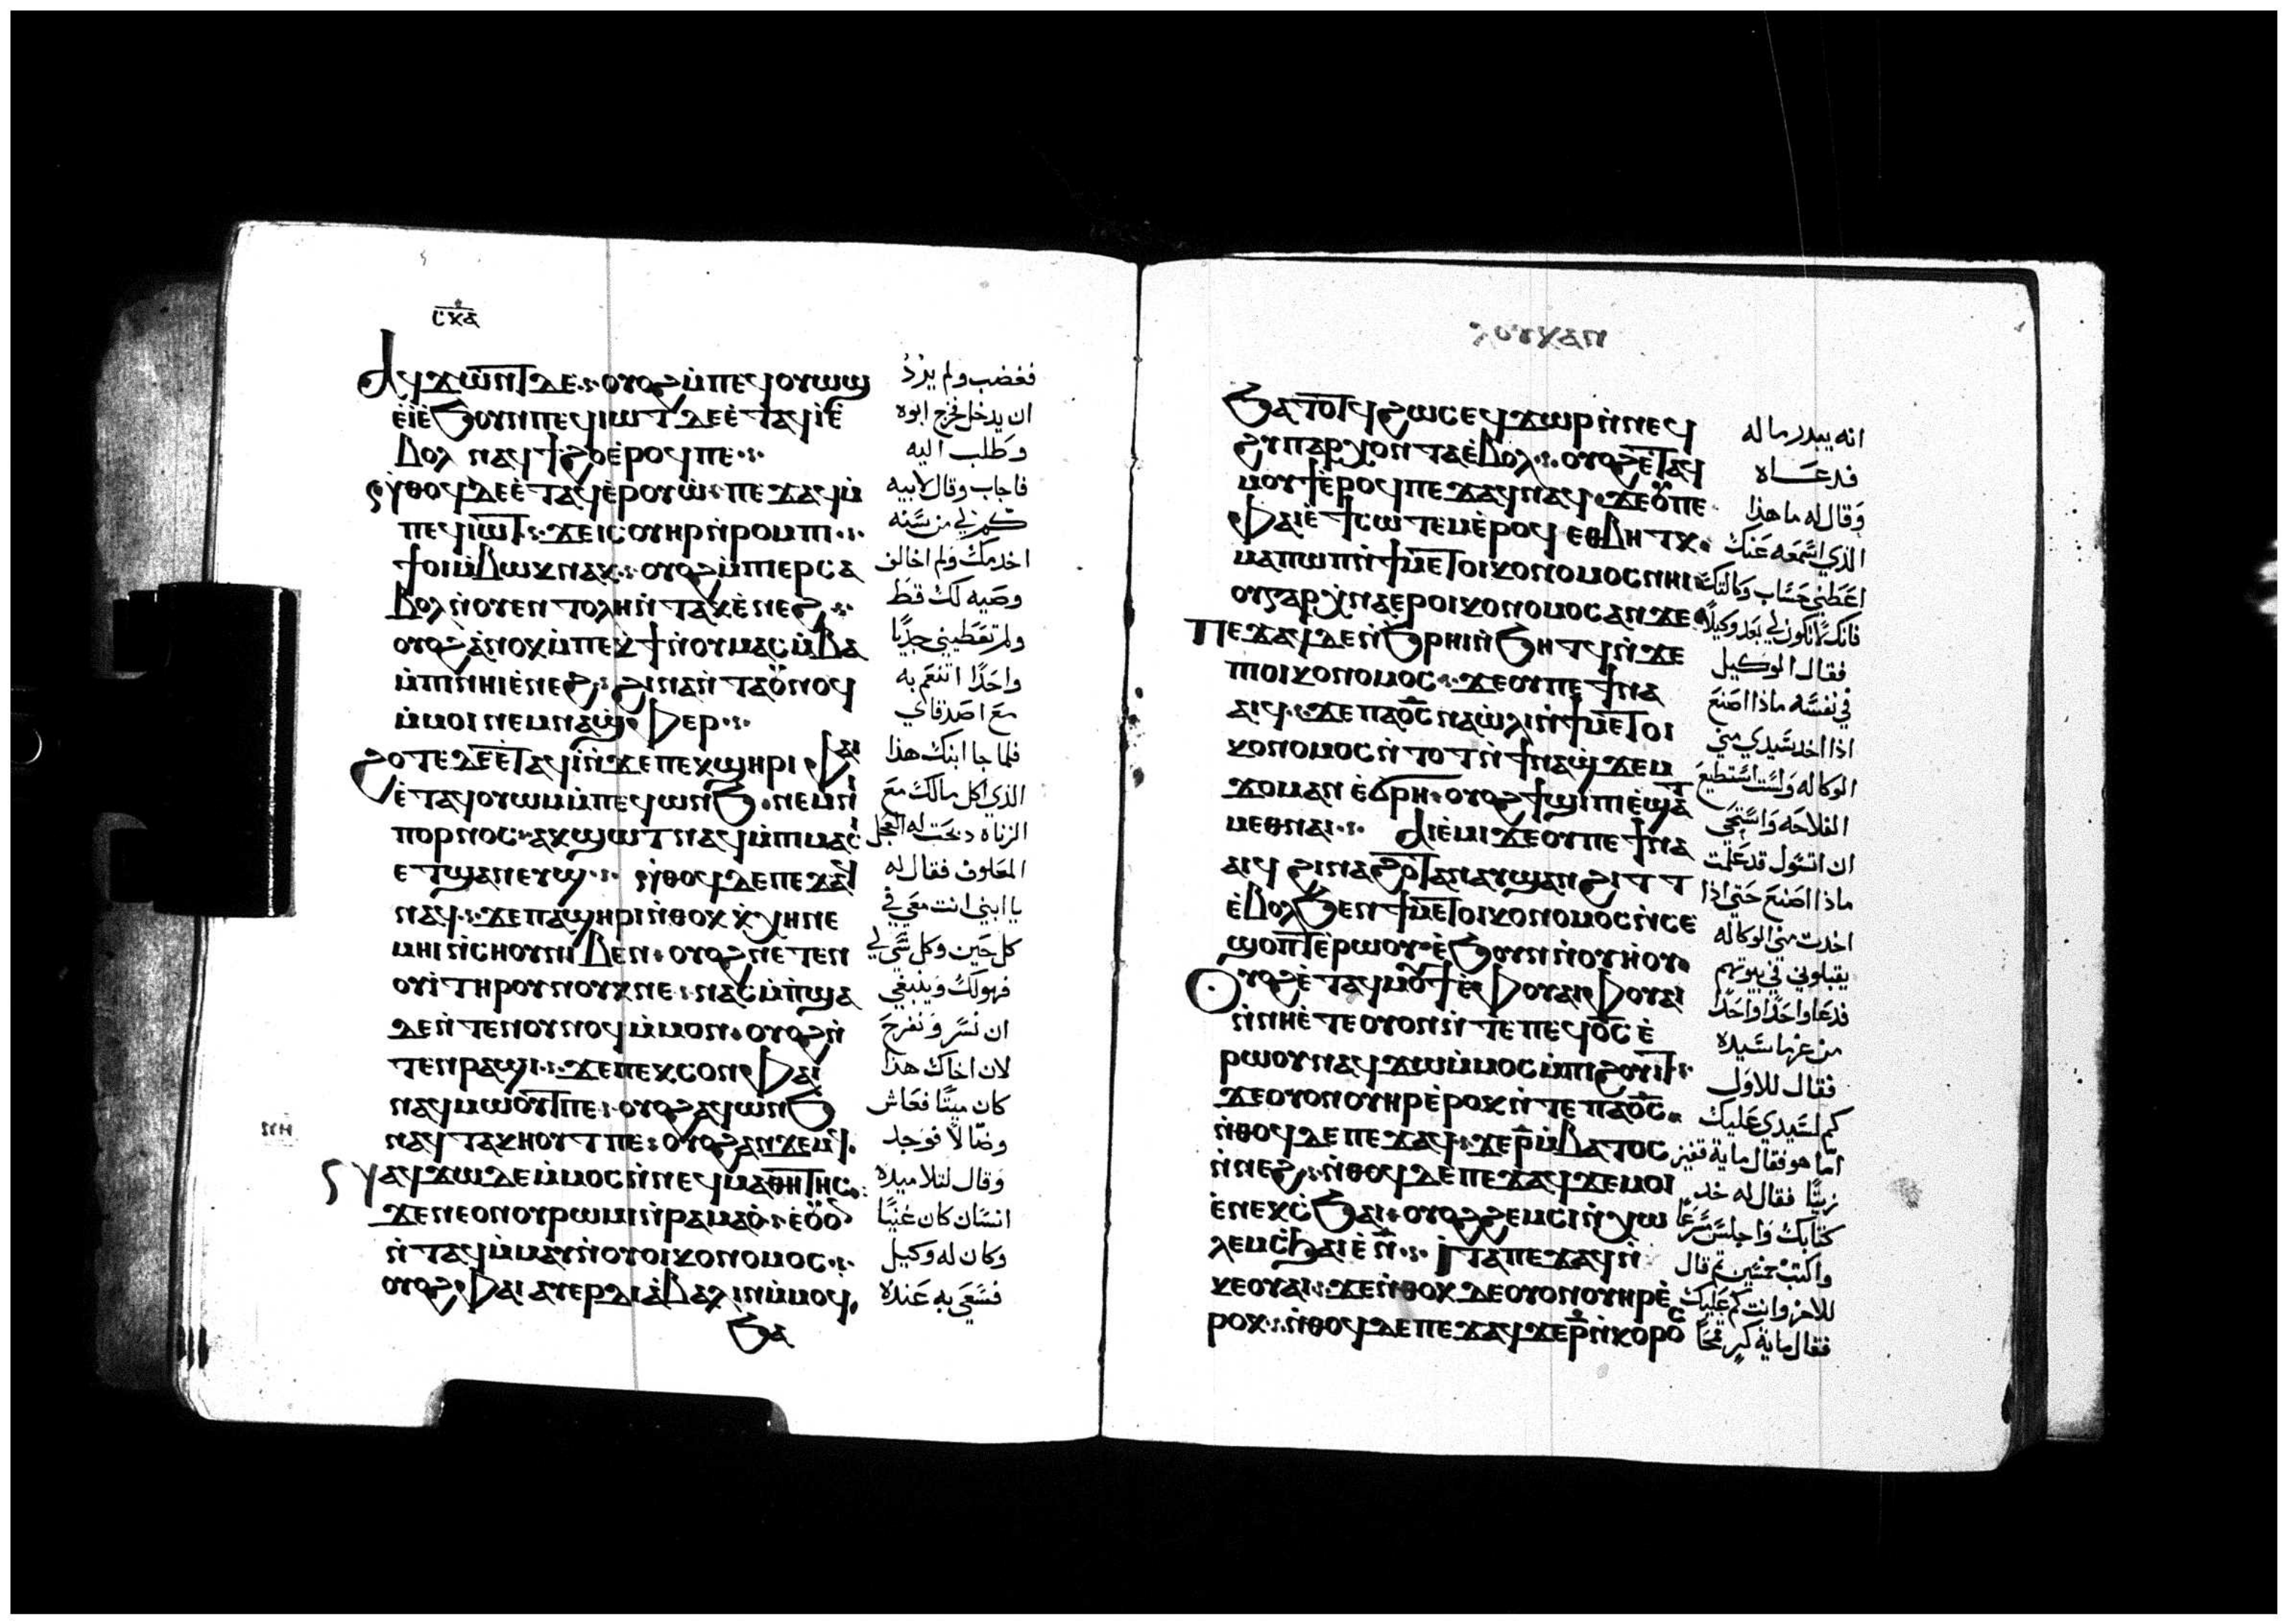 ⲥⲕⲁ
ⲁϥϫⲱⲛⲧ ⲇⲉ ⲟⲩⲟϩ ⲙ̀ⲡⲉϥⲟⲩⲱϣ
ⲉ̀ⲓ̀ⲉ̀ϧⲟⲩⲛ ⲡⲉϥⲓⲱⲧ ⲇⲉ ⲉ̀ⲧⲁϥⲓ̀ⲉ̀
ⲃⲟⲗ ⲛⲁϥϯϩⲟ ⲉ̀ⲣⲟϥ ⲡⲉ
ⲛ̀ⲑⲟϥ ⲇⲉ ⲉ̀ⲧⲁϥⲉ̀ⲣⲟⲩⲱ̀ ⲡⲉϫⲁϥ ⲙ̀
ⲡⲉϥⲓⲱⲧ ϫⲉ ⲓⲥ ⲟⲩⲏⲣ ⲛ̀ⲣⲟⲙⲡⲓ
ϯⲟⲓ ⲙ̀ⲃⲱⲕ ⲛⲁⲕ ⲟⲩⲟϩ ⲙ̀ⲡⲓⲉⲣⲥⲁ
ⲃⲟⲗ ⲛ̀ⲟⲩⲉⲛⲧⲟⲗⲏ ⲛ̀ⲧⲁⲕ ⲉ̀ⲛⲉϩ
ⲟⲩⲟϩ ⲁ̀ⲛⲟⲕ ⲙ̀ⲡⲉⲕϯ ⲛ̀ⲟⲩⲙⲁⲥ ⲙ̀ⲃⲁ
ⲙ̀ⲡⲓ ⲛⲏⲓ ⲉ̀ⲛⲉϩ ϩⲓⲛⲁ ⲛ̀ⲧⲁⲟⲩⲛⲟϥ
ⲙ̀ⲙⲟⲓ ⲛⲉⲙ ⲛⲁϣ̀ⲫⲉⲣ
ϩⲟⲧⲉ ⲇⲉ ⲉ̀ⲧⲁϥⲓ̀ ⲛ̀ϫⲉ ⲡⲉⲕϣⲏⲣⲓ ⲫⲁⲓ
ⲉ̀ⲧⲁϥⲟⲩⲱⲙ ⲙ̀ⲡⲉϥⲱⲛϧ ⲛⲉⲙ ⲛⲓ
ⲡⲟⲣⲛⲟⲥ ⲁⲕϣⲱⲧ ⲛⲁϥ ⲙ̀ⲡⲓⲙⲁⲥⲓ
ⲉⲧϣⲁⲛⲉⲩϣ ⲛ̀ⲑⲟϥ ⲇⲉ ⲡⲉϫⲁϥ
ⲛⲁϥ ϫⲉ ⲡⲁϣⲏⲣⲓ ⲛ̀ⲑⲟⲕ ⲕ̀ⲭⲏ ⲛⲉ
ⲙⲏⲓ ⲛ̀ⲥⲏⲟⲩ ⲛⲓⲃⲉⲛ ⲟⲩⲟϩ ⲛⲉⲧⲉⲛ
ⲟⲩⲓ̀ ⲧⲏⲣⲟⲩ ⲛⲟⲩⲕ ⲛⲉ ⲛⲁⲥⲙ̀ⲡϣⲁ
ⲇⲉ ⲛ̀ⲧⲉⲛⲟⲩⲛⲟϥ ⲙ̀ⲙⲟⲛ ⲟⲩⲟϩ ⲛ̀
ⲧⲉⲛⲣⲁϣⲓ ϫⲉ ⲡⲉⲕⲥⲟⲛ ⲫⲁⲓ
ⲛⲁϥⲙⲱⲟⲩⲧ ⲡⲉ ⲟⲩⲟϩ ⲁϥⲱⲛϧ
ⲛⲁϥⲧⲁⲕⲏⲟⲩⲧ ⲡⲉ ⲟⲩⲟϩ ⲁⲛϫⲉⲙϥ
ⲛⲁϥϫⲱ ⲇⲉ ⲙ̀ⲙⲟⲥ ⲛ̀ⲛⲉϥⲙⲁⲑⲏⲧⲏⲥ
ϫⲉ ⲛⲉ ⲟⲩⲟⲛ ⲟⲩⲣⲱⲙⲓ ⲛ̀ⲣⲁⲙⲁⲟ̀ ⲉ̀ⲟⲩⲟ
ⲛ̀ⲧⲁϥ ⲙ̀ⲙⲁⲩ ⲛ̀ⲟⲩⲟⲓⲕⲟⲛⲟⲙⲟⲥ
ⲟⲩⲟϩ ⲫⲁⲓ ⲁⲩⲉⲣⲇⲓⲁ̀ⲃⲁⲗⲓⲛ ⲙ̀ⲙⲟϥ
ϧⲁ
فغضب ولم يُرْدْ
ان يدخل فخرج ابوه
وَطلب اليه
فاجاب وقال لابيه
كم لي من سَنه
اخدمك ولم اخالف
وصَيه لك قط
ولم تعَطيني جديًا
واحَدًا اتنعَم به
مَع اصَدقاي
فلما جا ابنك هذا
الذي اكل مالك مَع
الزناه دبحَت له العجل
المعَلوف فقال له
يا ابني انت معَي في
كل حَين وكل شَي لي
فهولَك وَينبغي
ان نُسَر وَنفرحَ
لان اخاك هذا
كان ميتًا فعَاش
وضَالًا فوَجد
وَقال لتلاميده
انسَان كان غنيًا
وكان له وكيل
فسَعَي به عَنده
ⲗⲟⲩⲕⲁⲛ
ϧⲁⲧⲟⲧϥ ϩⲱⲥ ⲉϥϫⲱⲣ ⲛ̀ⲛⲉϥ
ϩⲩⲡⲁⲣⲭⲟⲛⲧⲁ ⲉ̀ⲃⲟⲗ ⲟⲩⲟϩ ⲉ̀ⲧⲁϥ
ⲙⲟⲩϯ ⲉ̀ⲣⲟϥ ⲡⲉϫⲁϥ ⲛⲁϥ ϫⲉ ⲟⲩ ⲡⲉ
ⲫⲁⲓ ⲉ̀ϯⲥⲱⲧⲉⲙ ⲉ̀ⲣⲟϥ ⲉⲑⲃⲏⲧⲕ
ⲙⲁ ⲡⲱⲡ ⲛ̀ϯⲙⲉⲧⲟⲓⲕⲟⲛⲟⲙⲟⲥ ⲛⲏⲓ
ⲟⲩ ⲅⲁⲣ ⲭ̀ⲛⲁⲉⲣⲟⲓⲕⲟⲛⲟⲙⲟⲥ ⲁⲛ ϫⲉ
ⲡⲉϫⲁϥ ⲇⲉ ⲛ̀ϧⲣⲏⲓ ⲛ̀ϧⲏⲧϥ ⲛ̀ϫⲉ
ⲡⲓⲟⲓⲕⲟⲛⲟⲙⲟⲥ ϫⲉ ⲟⲩ ⲡⲉ ϯⲛⲁ
ⲁⲓϥ ϫⲉ ⲡⲁⲟ̅ⲥ̅ ⲛⲁⲱ̀ⲗⲓ ⲛ̀ϯⲙⲉⲧⲟⲓ
ⲕⲟⲛⲟⲙⲟⲥ ⲛ̀ⲧⲟⲧ ⲛ̀ϯⲛⲁϣ̀ϫⲉⲙ
ϫⲟⲙ ⲁⲛ ⲉ̀ϭⲣⲏ ⲟⲩⲟϩ ϯϣⲓⲡⲓ ⲉ̀ϣⲁⲧ
ⲙⲉⲑⲛⲁⲓ ⲁⲓⲉ̀ⲙⲓ ϫⲉ ⲟⲩ ⲡⲉ ϯⲛⲁ
ⲁⲓϥ ϩⲓⲛⲁ ϩⲟⲧⲁⲛ ⲁⲩϣⲁⲛϩⲓⲧⲧ
ⲉ̀ⲃⲟⲗ ϧⲉⲛ ϯⲙⲉⲧⲟⲓⲕⲟⲛⲟⲙⲟⲥ ⲛ̀ⲥⲉ
ϣⲟⲡⲧ ⲉ̀ⲣⲱⲟⲩ ⲉ̀ϧⲟⲩⲛ ⲛ̀ⲟⲩⲏⲟⲩ
ⲟⲩⲟϩ ⲉ̀ⲧⲁϥⲙⲟⲩϯ ⲉ̀ⲫⲟⲩⲁⲓ ⲫⲟⲩⲁⲓ
ⲛ̀ⲛⲏ ⲉ̀ⲧⲉ ⲟⲩⲟⲛ ⲛ̀ⲧⲉ ⲡⲉϥⲟ̅ⲥ̅ ⲉ̀
ⲣⲱⲟⲩ ⲛⲁϥϫⲱ ⲙ̀ⲙⲟⲥ ⲙ̀ⲡⲓϩⲟⲩⲓⲧ
ϫⲉ ⲟⲩⲟⲛ ⲟⲩⲏⲣ ⲉ̀ⲣⲟⲕ ⲛ̀ⲧⲉ ⲡⲁⲟ̅ⲥ̅
ⲛ̀ⲑⲟϥ ⲇⲉ ⲡⲉϫⲁϥ ϫⲉ ⲣ̅ ⲙ̀ⲃⲁⲧⲟⲥ
ⲛ̀ⲛⲉϩ ⲛ̀ⲑⲟϥ ⲇⲉ ⲡⲉϫⲁϥ ϫⲉ ⲙⲟⲓ
ⲉ̀ⲛⲉⲕⲥ̀ϧⲁⲓ ⲟⲩⲟϩ ϩⲉⲙⲥⲓ ⲛ̀ⲭⲱ
ⲗⲉⲙ ⲥ̀ϧⲁⲓ ⲉ̀ⲛ̅ ⲓⲧⲁ ⲡⲉϫⲁϥ ⲛ̀
ⲕⲉⲟⲩⲁⲓ ϫⲉ ⲛ̀ⲑⲟⲕ ⲇⲉ ⲟⲩⲟⲛ ⲟⲩⲏⲣ ⲉ̀
ⲣⲟⲕ ⲛ̀ⲑⲟϥ ⲇⲉ ⲡⲉϫⲁϥ ϫⲉ ⲣ̅ ⲛ̀ⲕⲟⲣⲟⲥ
انه يبدر ماله
فدعَاه
وَقال له ما هذا
الذي اسَمعَه عَنك
اعَطني حسَاب وكالتك
فانك ما تكون لي بعَد وكيلًا
فقال الوَكيل
في نفسَه ماذا اصَنعَ
اذا اخد سَيدي مني
الوكاله وَلسَت اسَتطيعَ
الفلاحَه وَاسَتحَي
ان اتسَول قد عَلمت
ماذا اصَنعَ حَتي اذا
اخدت مني الوكاله
يقبلوني في بيوتهم
فدعَا واحَدًا واحَدًا
من غرما سَيده
فقال للاوَل
كم لسَيدي عَليك
امَا هو فقال ماية قفيز
زيتًا فقال له خد
كتابك وَاجلسَ مسَرعَا
واكتب خمسَين ثم قال
للاخر وانت كم عَليك
فقال ماية كر قمحَا